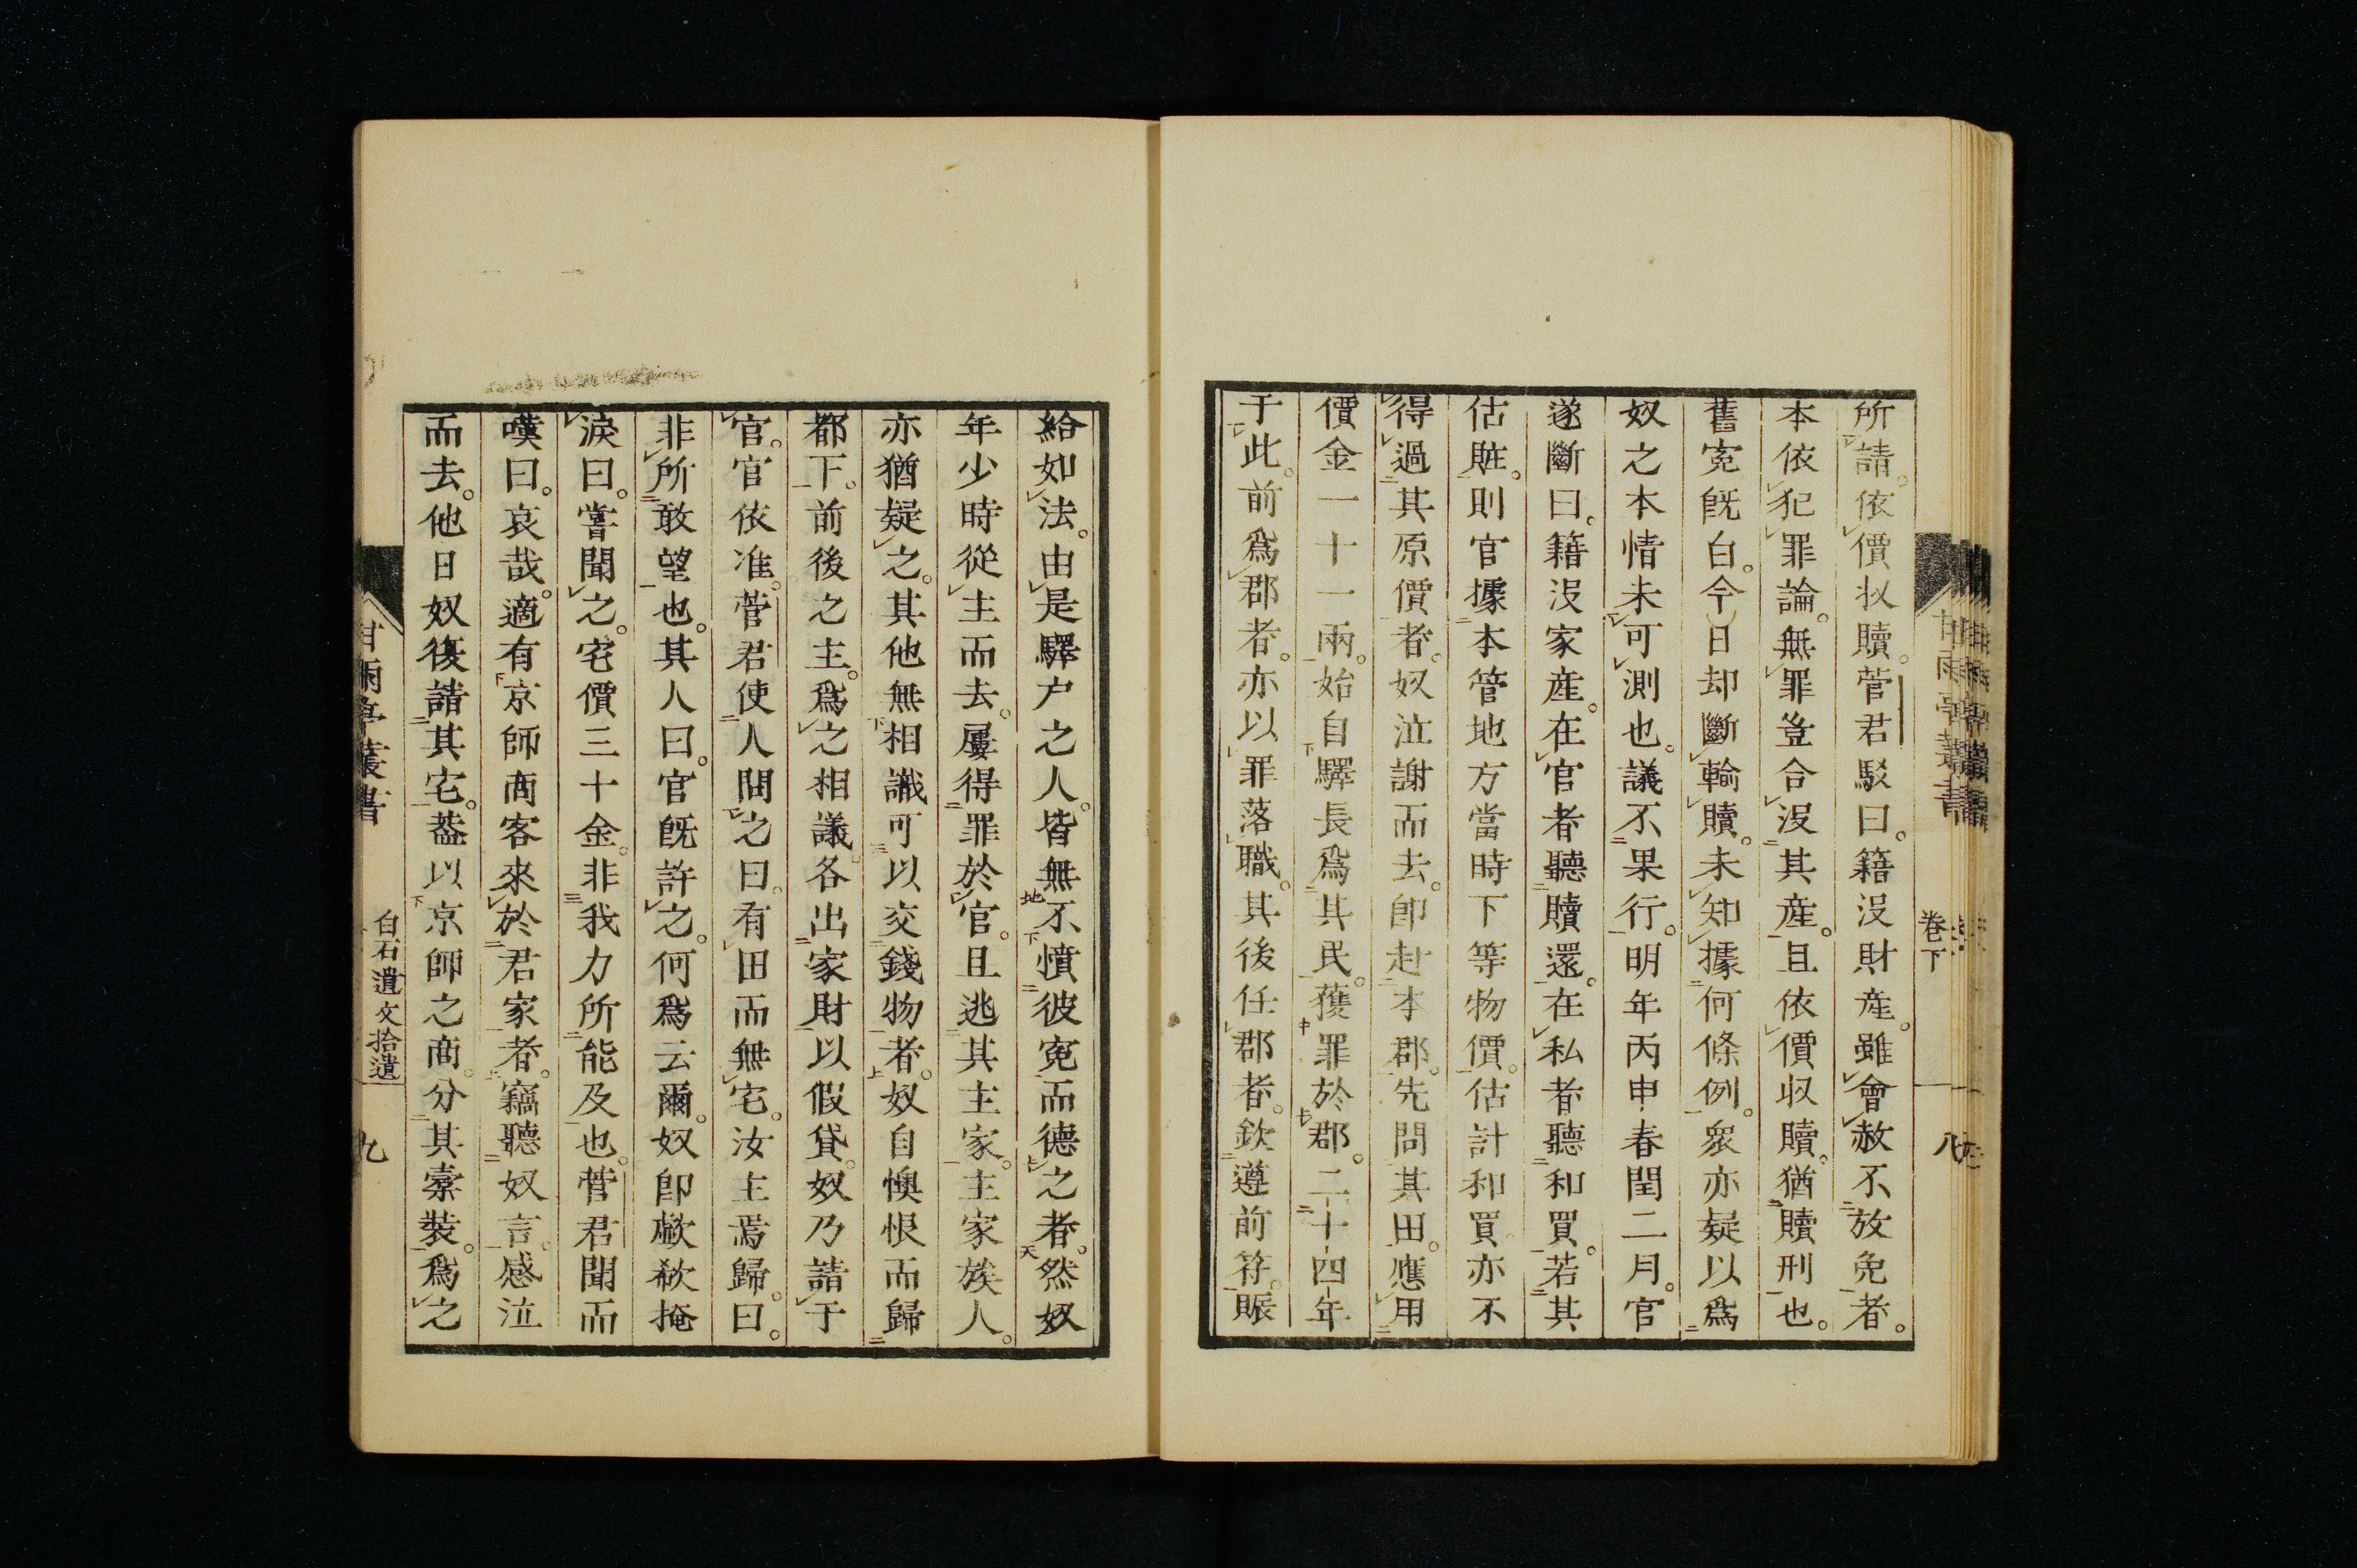 所請。依價収贖。菅君駁曰。籍沒財産。雖會赦不放免者。
本依犯罪論。無罪豈合沒其産。且依價収贖。猶贖刑也。
舊寃既白。今日却斷輸贖。未知據何條例。衆亦疑以爲
奴之本情未可測也。議不果行。明年丙申春閏二月。官
遂斷曰。籍沒家産。在官者聽贖還。在私者聽和買。若其
估賍。則官據本管地方當時下等物價。估計和買亦不
得過其原價者。奴泣謝而去。卽赴本郡。先問其田。應用
價金一十一兩。始自驛長爲其民。獲罪於郡。二十四年
于此。前爲郡者。亦以罪落職。其後任郡者。欽遵前符。賑
給如法。由是驛户之人。皆無不憤彼寃而德之者。然奴
年少時從主而去。屢得罪於官。且逃其主家。主家族人。
亦猶疑之。其他無相識可以交錢物者。奴自懊恨而歸
都下。前後之主。爲之相議。各出家財以假貸。奴乃詣于
官。官依准。菅君使人問之曰。有田而無宅。汝主焉歸。曰。
非所敢望也。其人曰。官既許之。何爲云爾。奴卽歔欷掩
淚曰。嘗聞之。宅價三十金。非我力所能及也。菅君聞而
嘆曰。哀哉。適有京師商客來於君家者。竊聽奴言。感泣
而去。他日奴復詣其宅。葢以京師之商。分其橐裝。爲之
甘雨亭叢書
卷下
八
甘雨亭叢書
白石遺文拾遺
九